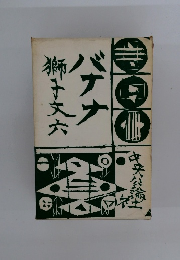 バナナ
獅子文六
中央公論社